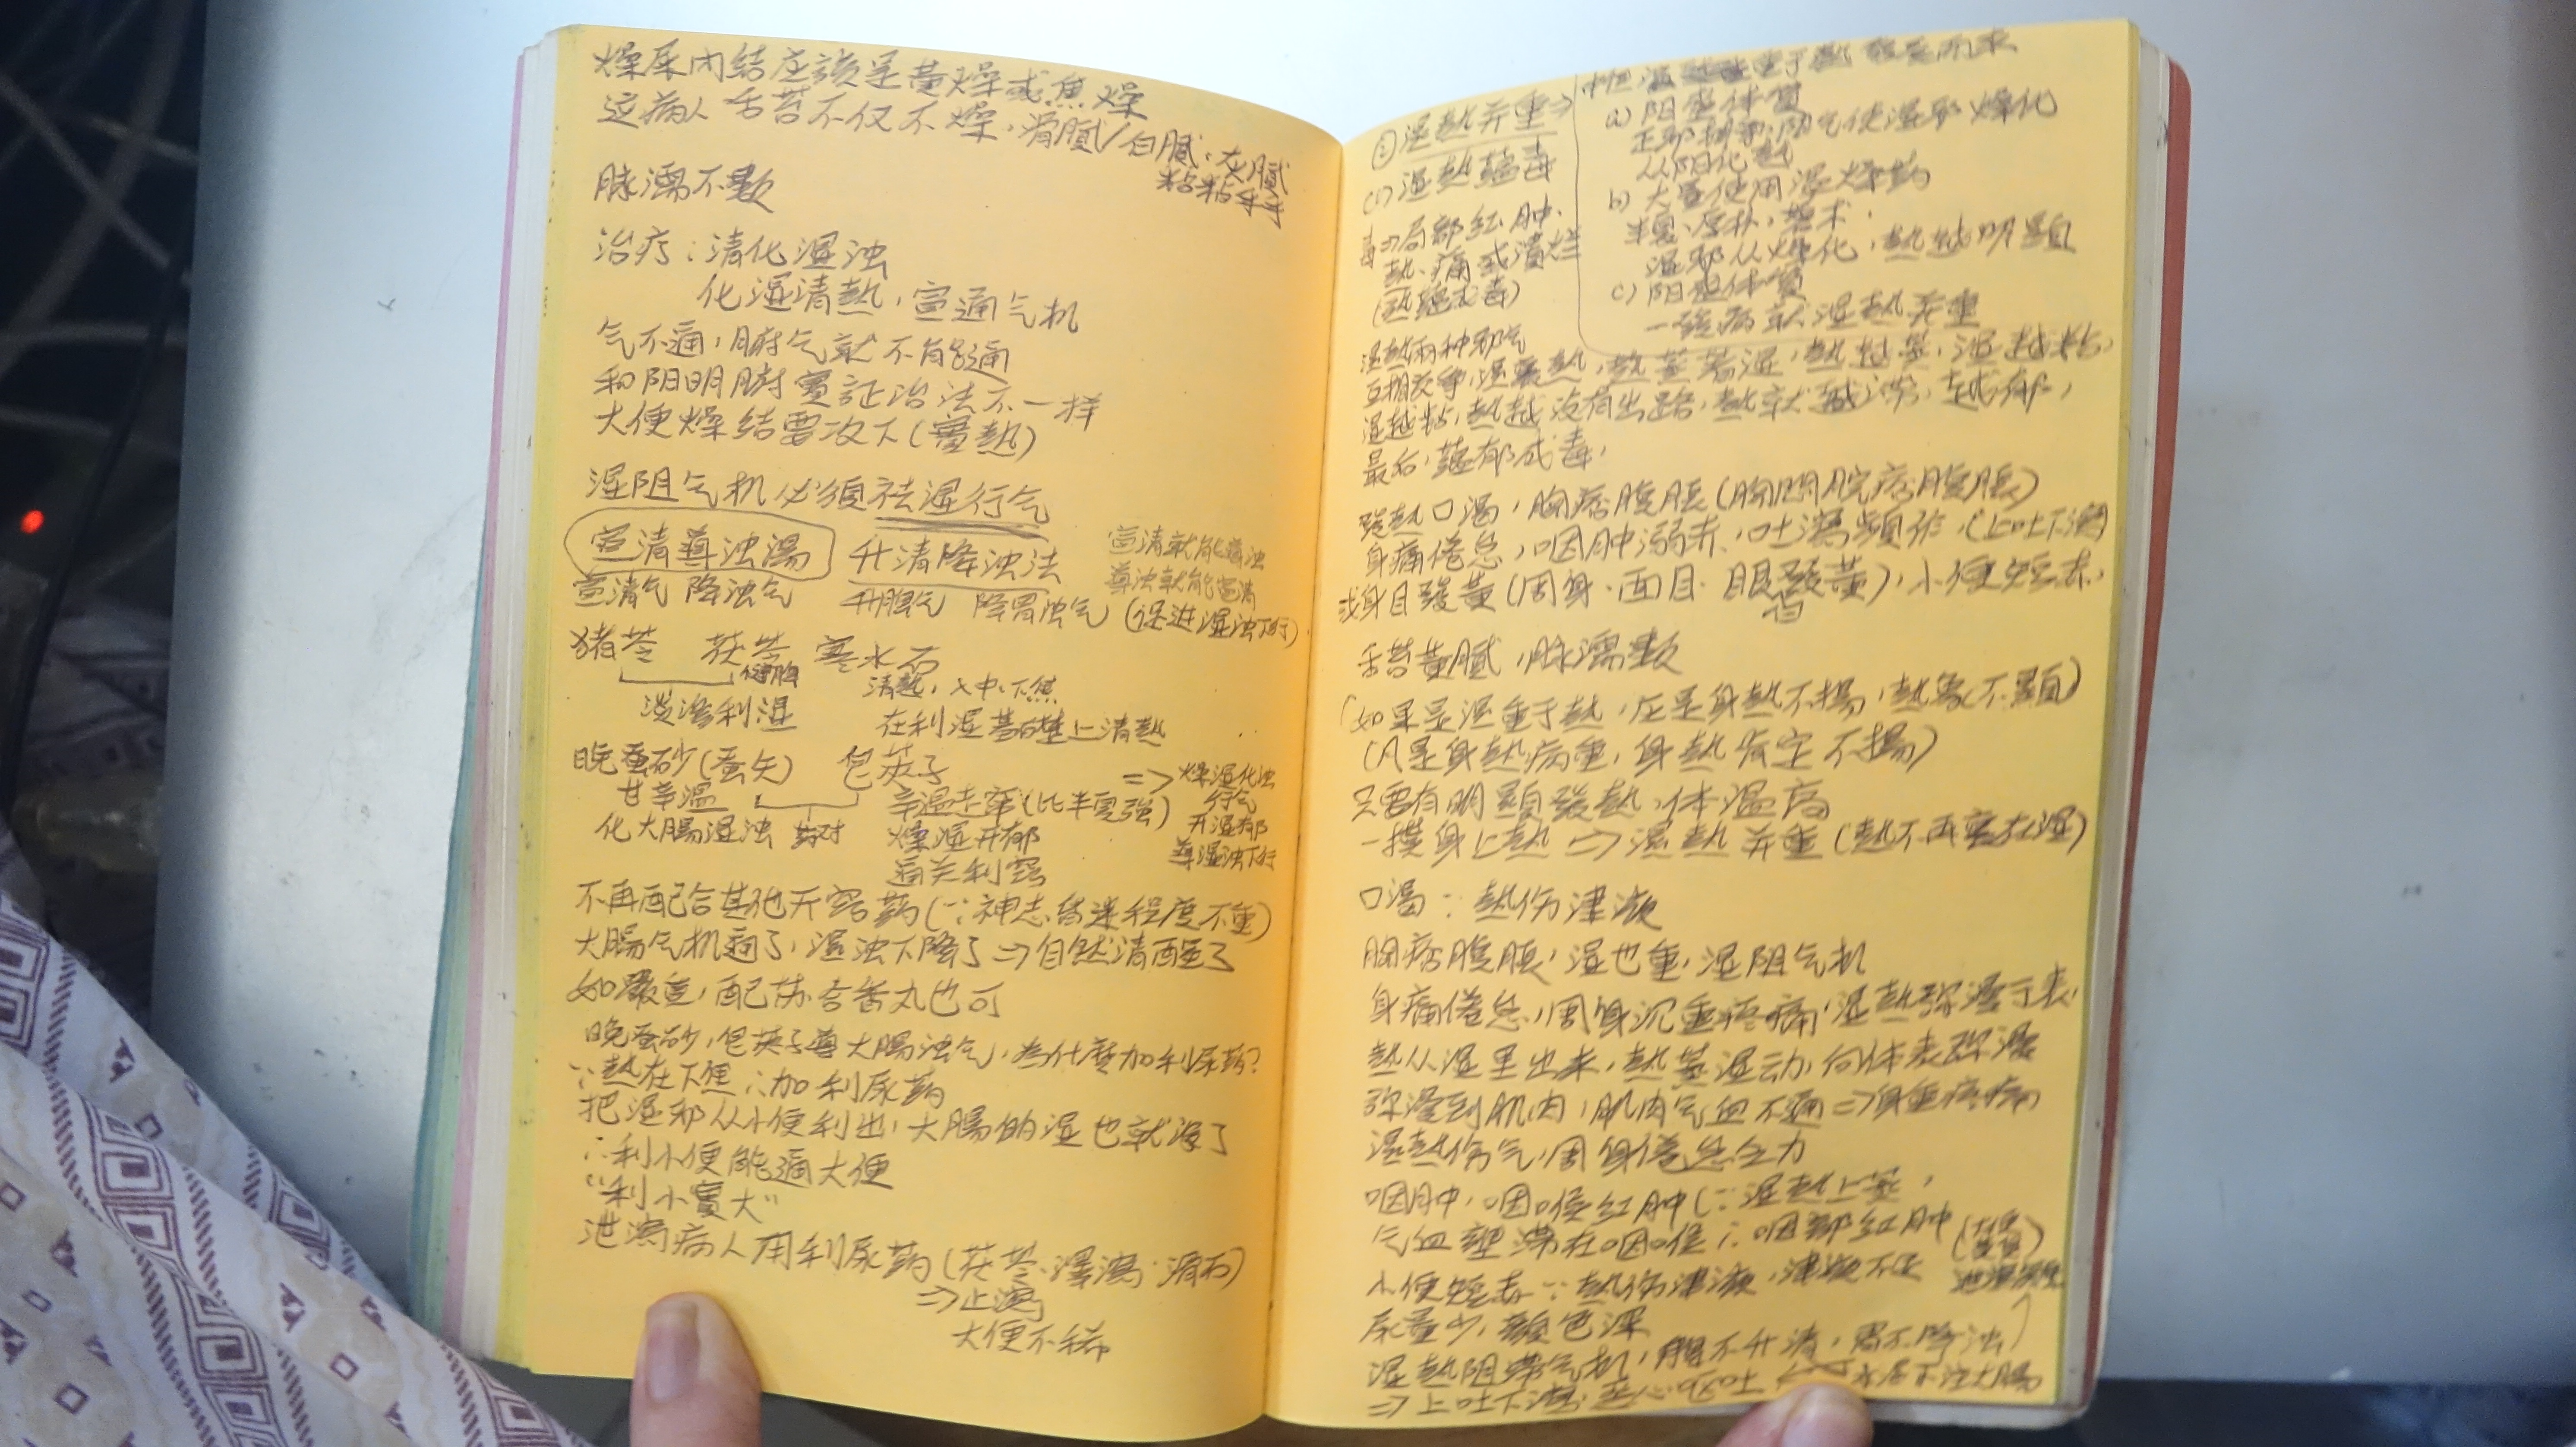 燥屎内结应該是黄燥或焦燥
这病人舌苔不仅不燥,滑腻/白腻,灰腻
粘粘手手
脉濡不數
治疗:清化湿浊
化湿清熱,宣通气机
气不通,腑气就不能通
和阳明腑實証治法不一样
大便燥结要攻下(實熱)
湿阻气机必须祛湿行气
宣清導浊湯 升清降浊法
宣清就能導浊
導浊就能宣清
宣清气 降浊气 升脾气 降胃浊气 (促进湿浊下行)
猪苓 茯苓 寒水石
健脾
清熱,入中、下焦
淡渗利湿
在利湿基礎上清熱
晚蚕砂(蚕矢) 皂荚子
甘辛温
辛温走窜(比半夏強)
化大腸湿浊 葯对
燥湿开郁
通关利窍
=> 燥湿化浊
行气
开湿郁
導湿浊下行
不再配合其他开窍葯(∵神志昏迷程度不重)
大腸气机通了,湿浊下降了=>自然清醒了
如嚴重,配苏合香丸也可
晚蚕砂,皂荚子導大腸浊气,為什麼加利尿葯?
∵熱在下焦 ∴加利尿葯
把湿邪从小便利出,大腸的湿也就没了
∴利小便能通大便
“利小實大”
泄瀉病人用利尿葯(茯苓、澤瀉、滑石)
=>止瀉
大便不稀
② 湿熱并重=>
(1) 湿熱蕴毒
毒=>局部红、肿、
熱、痛或潰烂
(熱蕴成毒)
a) 阳盛体質
从阳化熱
b) 大量使用温燥葯
半夏、厚朴、苍术,
湿邪从燥化,熱越明显
c) 阳盛体質
一發病就湿熱并重
湿熱兩种邪气
互相交争,湿裹熱,熱蒸着湿,熱越蒸,湿越粘,
湿越粘,熱越没有出路,熱就越郁,
最后,蕴郁成毒,
發熱口渴,胸痞腹脹(胸悶脘痞腹脹)
身痛倦怠,咽肿溺赤,吐瀉频作,(上吐下瀉)
或身目發黄(周身、面目、眼白發黄),小便短赤,
舌苔黄腻,脉濡數
(如果是湿重于熱,应是身熱不揚,熱象不顯)
(凡是身熱病重,身熱肯定不揚)
只要有明顯發熱,体温高
一摸身上熱=>湿熱并重(熱不再裹在湿)
口渴∵熱伤津液
胸痞腹脹,湿也重,湿阻气机
身痛倦怠,周身沉重疼痛,湿熱弥漫于表,
熱从湿里出来,熱蒸湿动,向体表弥漫
弥漫到肌肉,肌肉气血不通=>身重疼痛
湿熱伤气,周身倦怠乏力
咽肿,咽喉红肿(∵湿熱上蒸,
气血壅滞在咽喉∴咽部红肿
小便短赤∵熱伤津液,津液不足
尿量少,顏色深
湿熱阻滞气机,脾不升清,胃不降浊
=>上吐下瀉,恶心呕吐 <= 水湿下注大腸